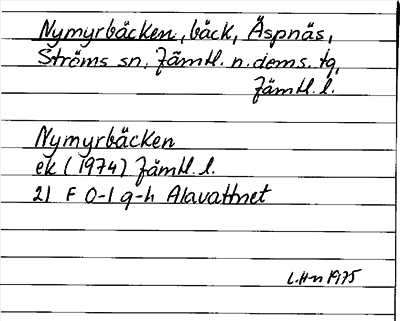 Nymyrbäcken, bäck, Äspnäs,
Ströms sn, Jämtl. n. doms. tg,
Jämtl. l.
Nymyrbäcken
ek (1974) Jämtl. l.
21 F 0-1 g-h Alavattnet
L.H-n 1975